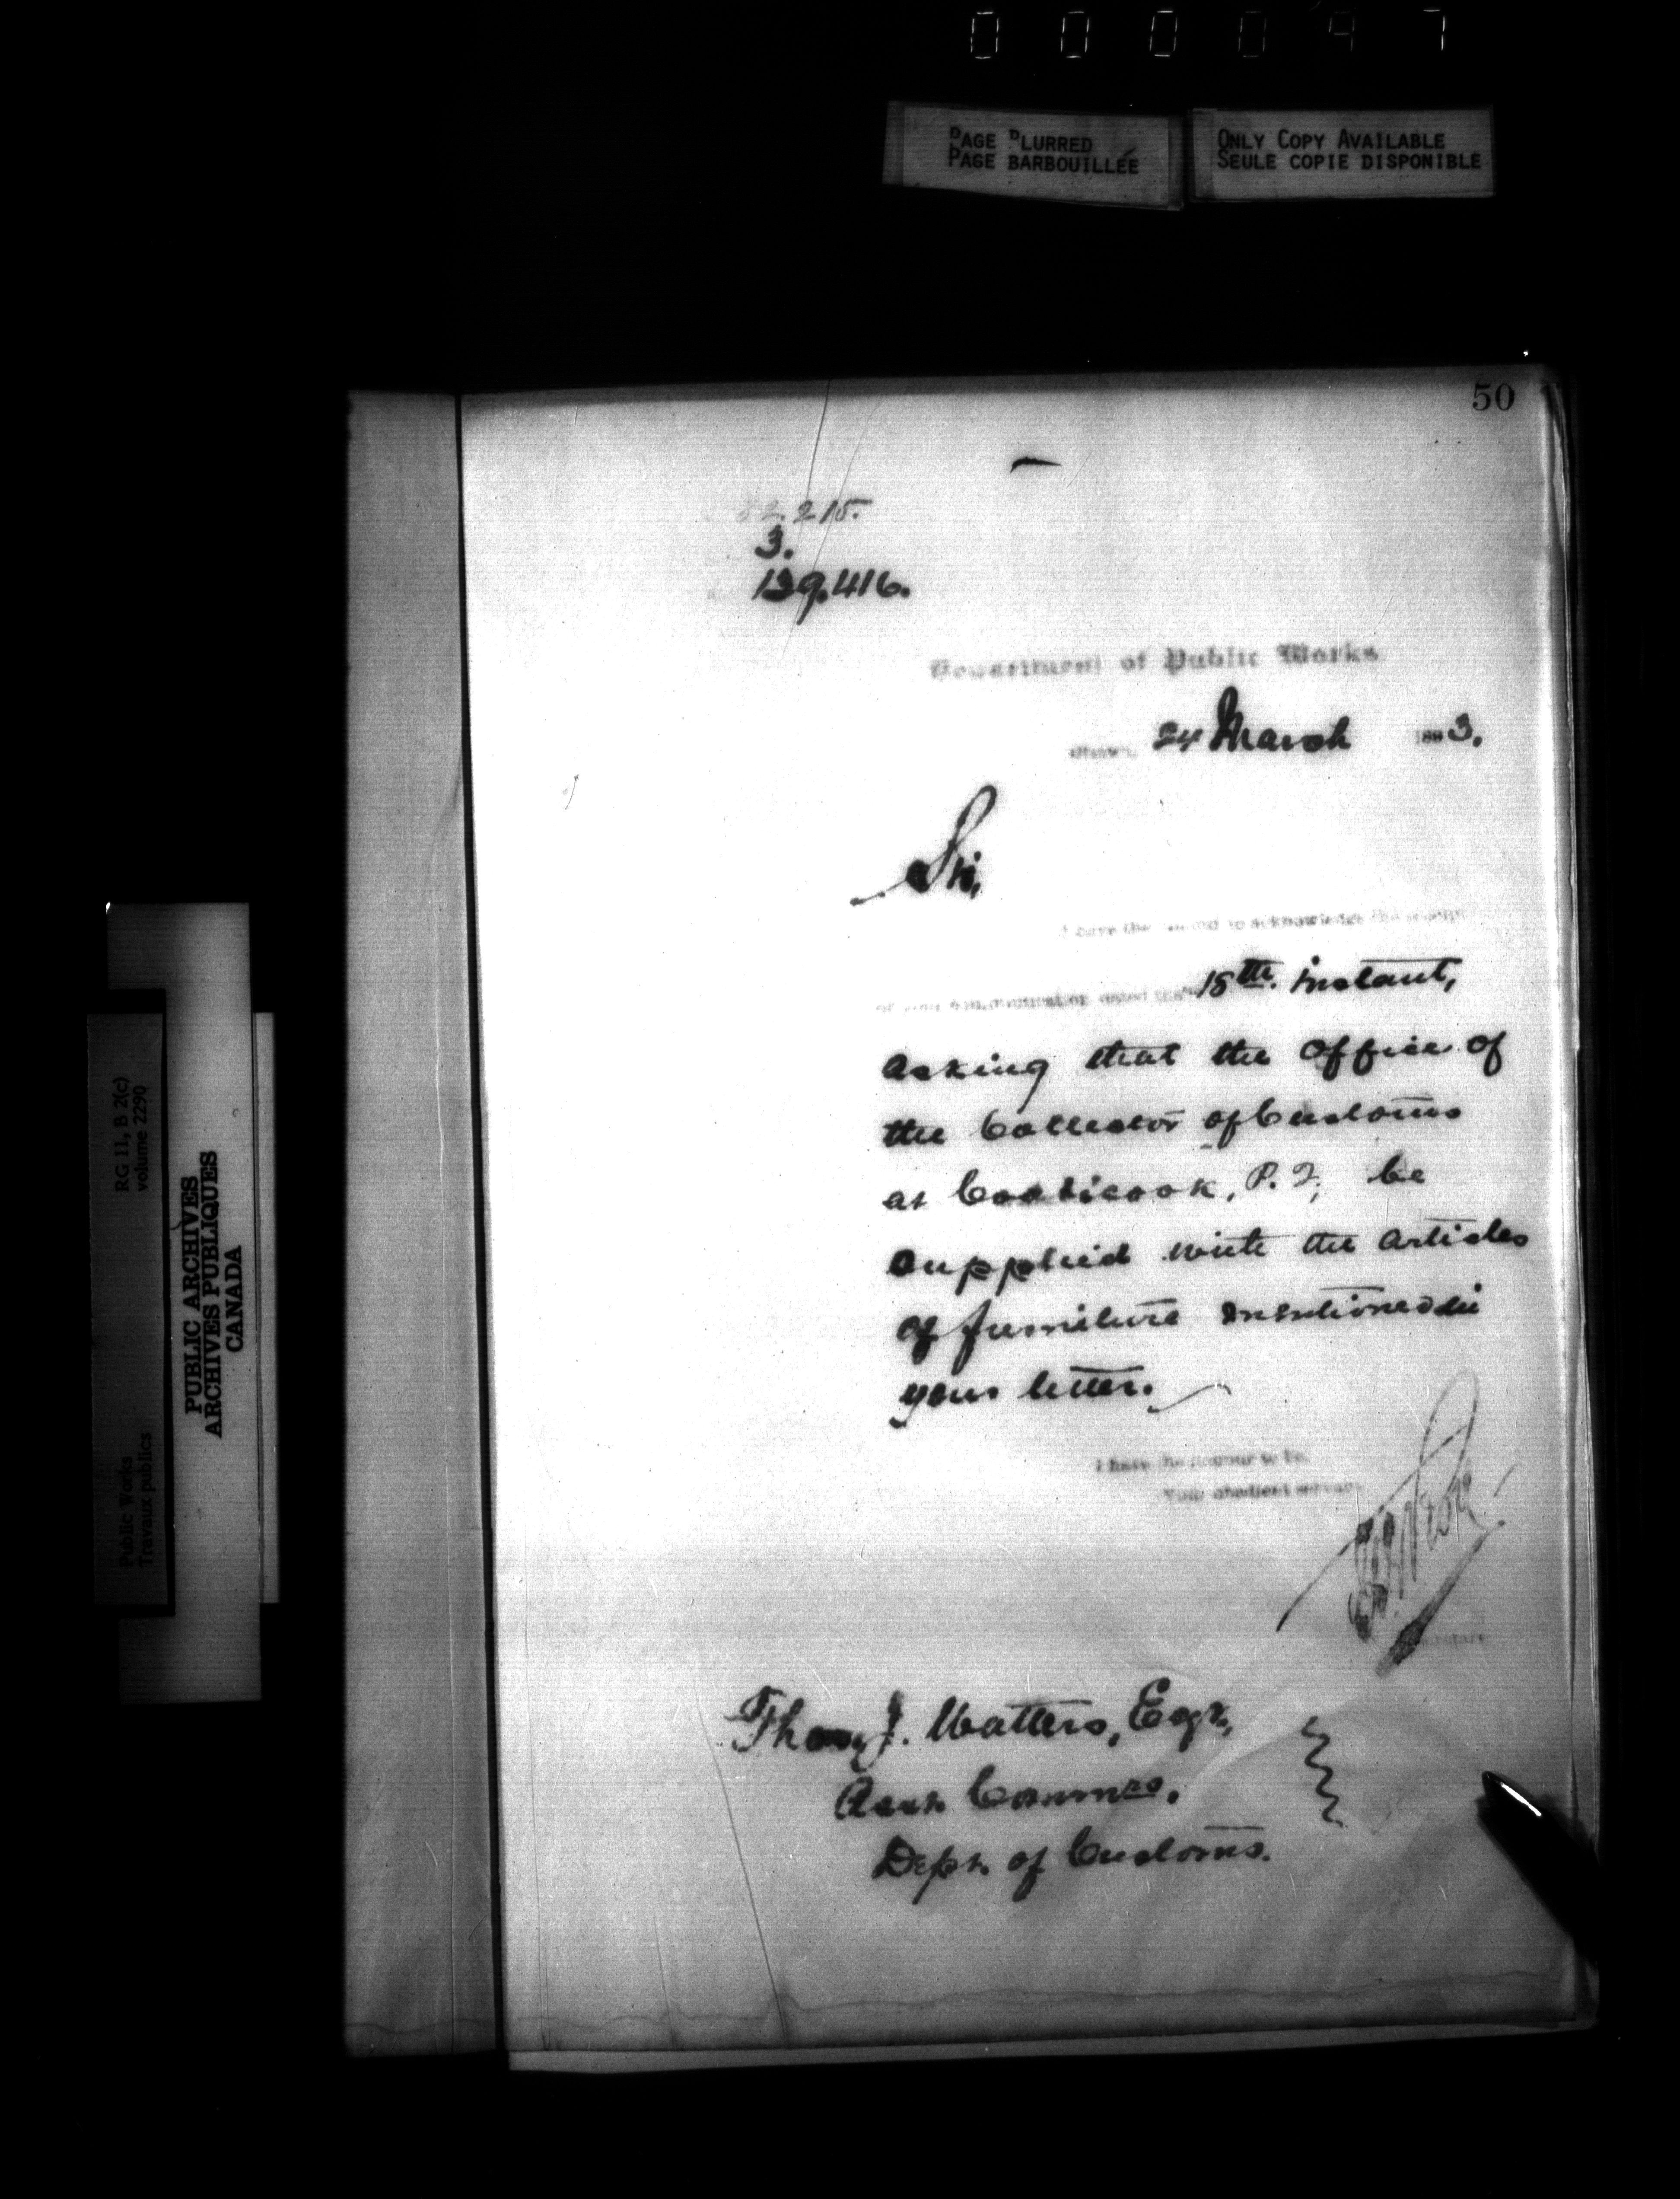 000097
PAGE BLURRED
PAGE BARBOUILLÉE
ONLY COPY AVAILABLE
SEULE COPIE DISPONIBLE
50
82.215.
3.
139.416.
Department of Public Works
Ottawa, 24 March 1883.
Sir,
I have the honour to acknowledge the receipt
of your communication dated the 18th. instant,
asking that the Office of
the Collector of Customs
at Coaticook, P.Q, be
supplied with the articles
of furniture mentioned in
your letter.
I have the honour to be,
Your obedient servant
Secretary
Thos J. Watters, Esqr,
Asst. Commrs.
Dept. of Customs.
RG 11, B 2(c)
volume 2290
Public Works
Travaux publics
PUBLIC ARCHIVES
ARCHIVES PUBLIQUES
CANADA